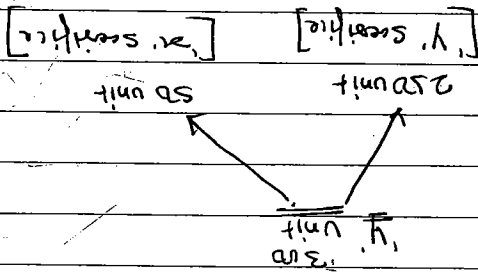 300
unit
'y'
50 unit 250 unit
['x' Sacrifice] ['y' Sacrifice]